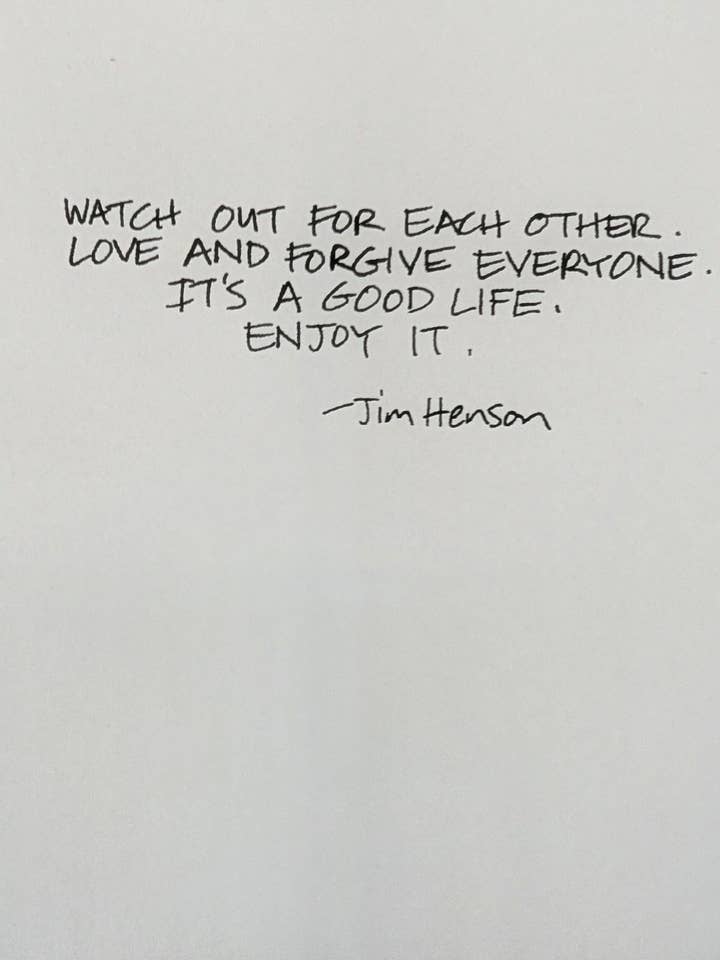 WATCH OUT FOR EACH OTHER.
LOVE AND FORGIVE EVERYONE.
IT'S A GOOD LIFE.
ENJOY IT.
—Jim Henson